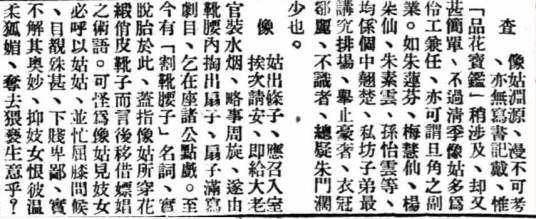 查　像姑淵源、漫不可考
、亦無寫書記載、惟
「品花寶鑑」稍涉及、却又
甚簡單、不過清季像姑多爲
伶工兼任、亦可謂且角之副
業。如朱蓮芬、梅慧仙、楊
朵仙、朱素雲、孫怡雲等、
均係個中翹楚、私坊子弟最
講究排場、舉止豪奢、衣冠
鄒麗、不識者、總疑朱門濶
少也。
像　姑出條子、應召入室
挨次請安、即給大老
官裝水烟、略事周旋、遂由
靴腰內掏出扇子、扇子滿寫
劇目、乞在座諸公點戲。至
今有「割靴腰子」名詞、實
脫胎於此、蓋指像姑所穿花
緞俏皮靴子而言後移借嫖娼
之術語。可怪爲像姑見妓女
必呼以姑姑、並忙屈膝問候
、目覩殊甚、下賤卑鄙、實
不解其奧妙、抑妓女恨彼溫
柔狐媚、奪去猥褻生意乎？